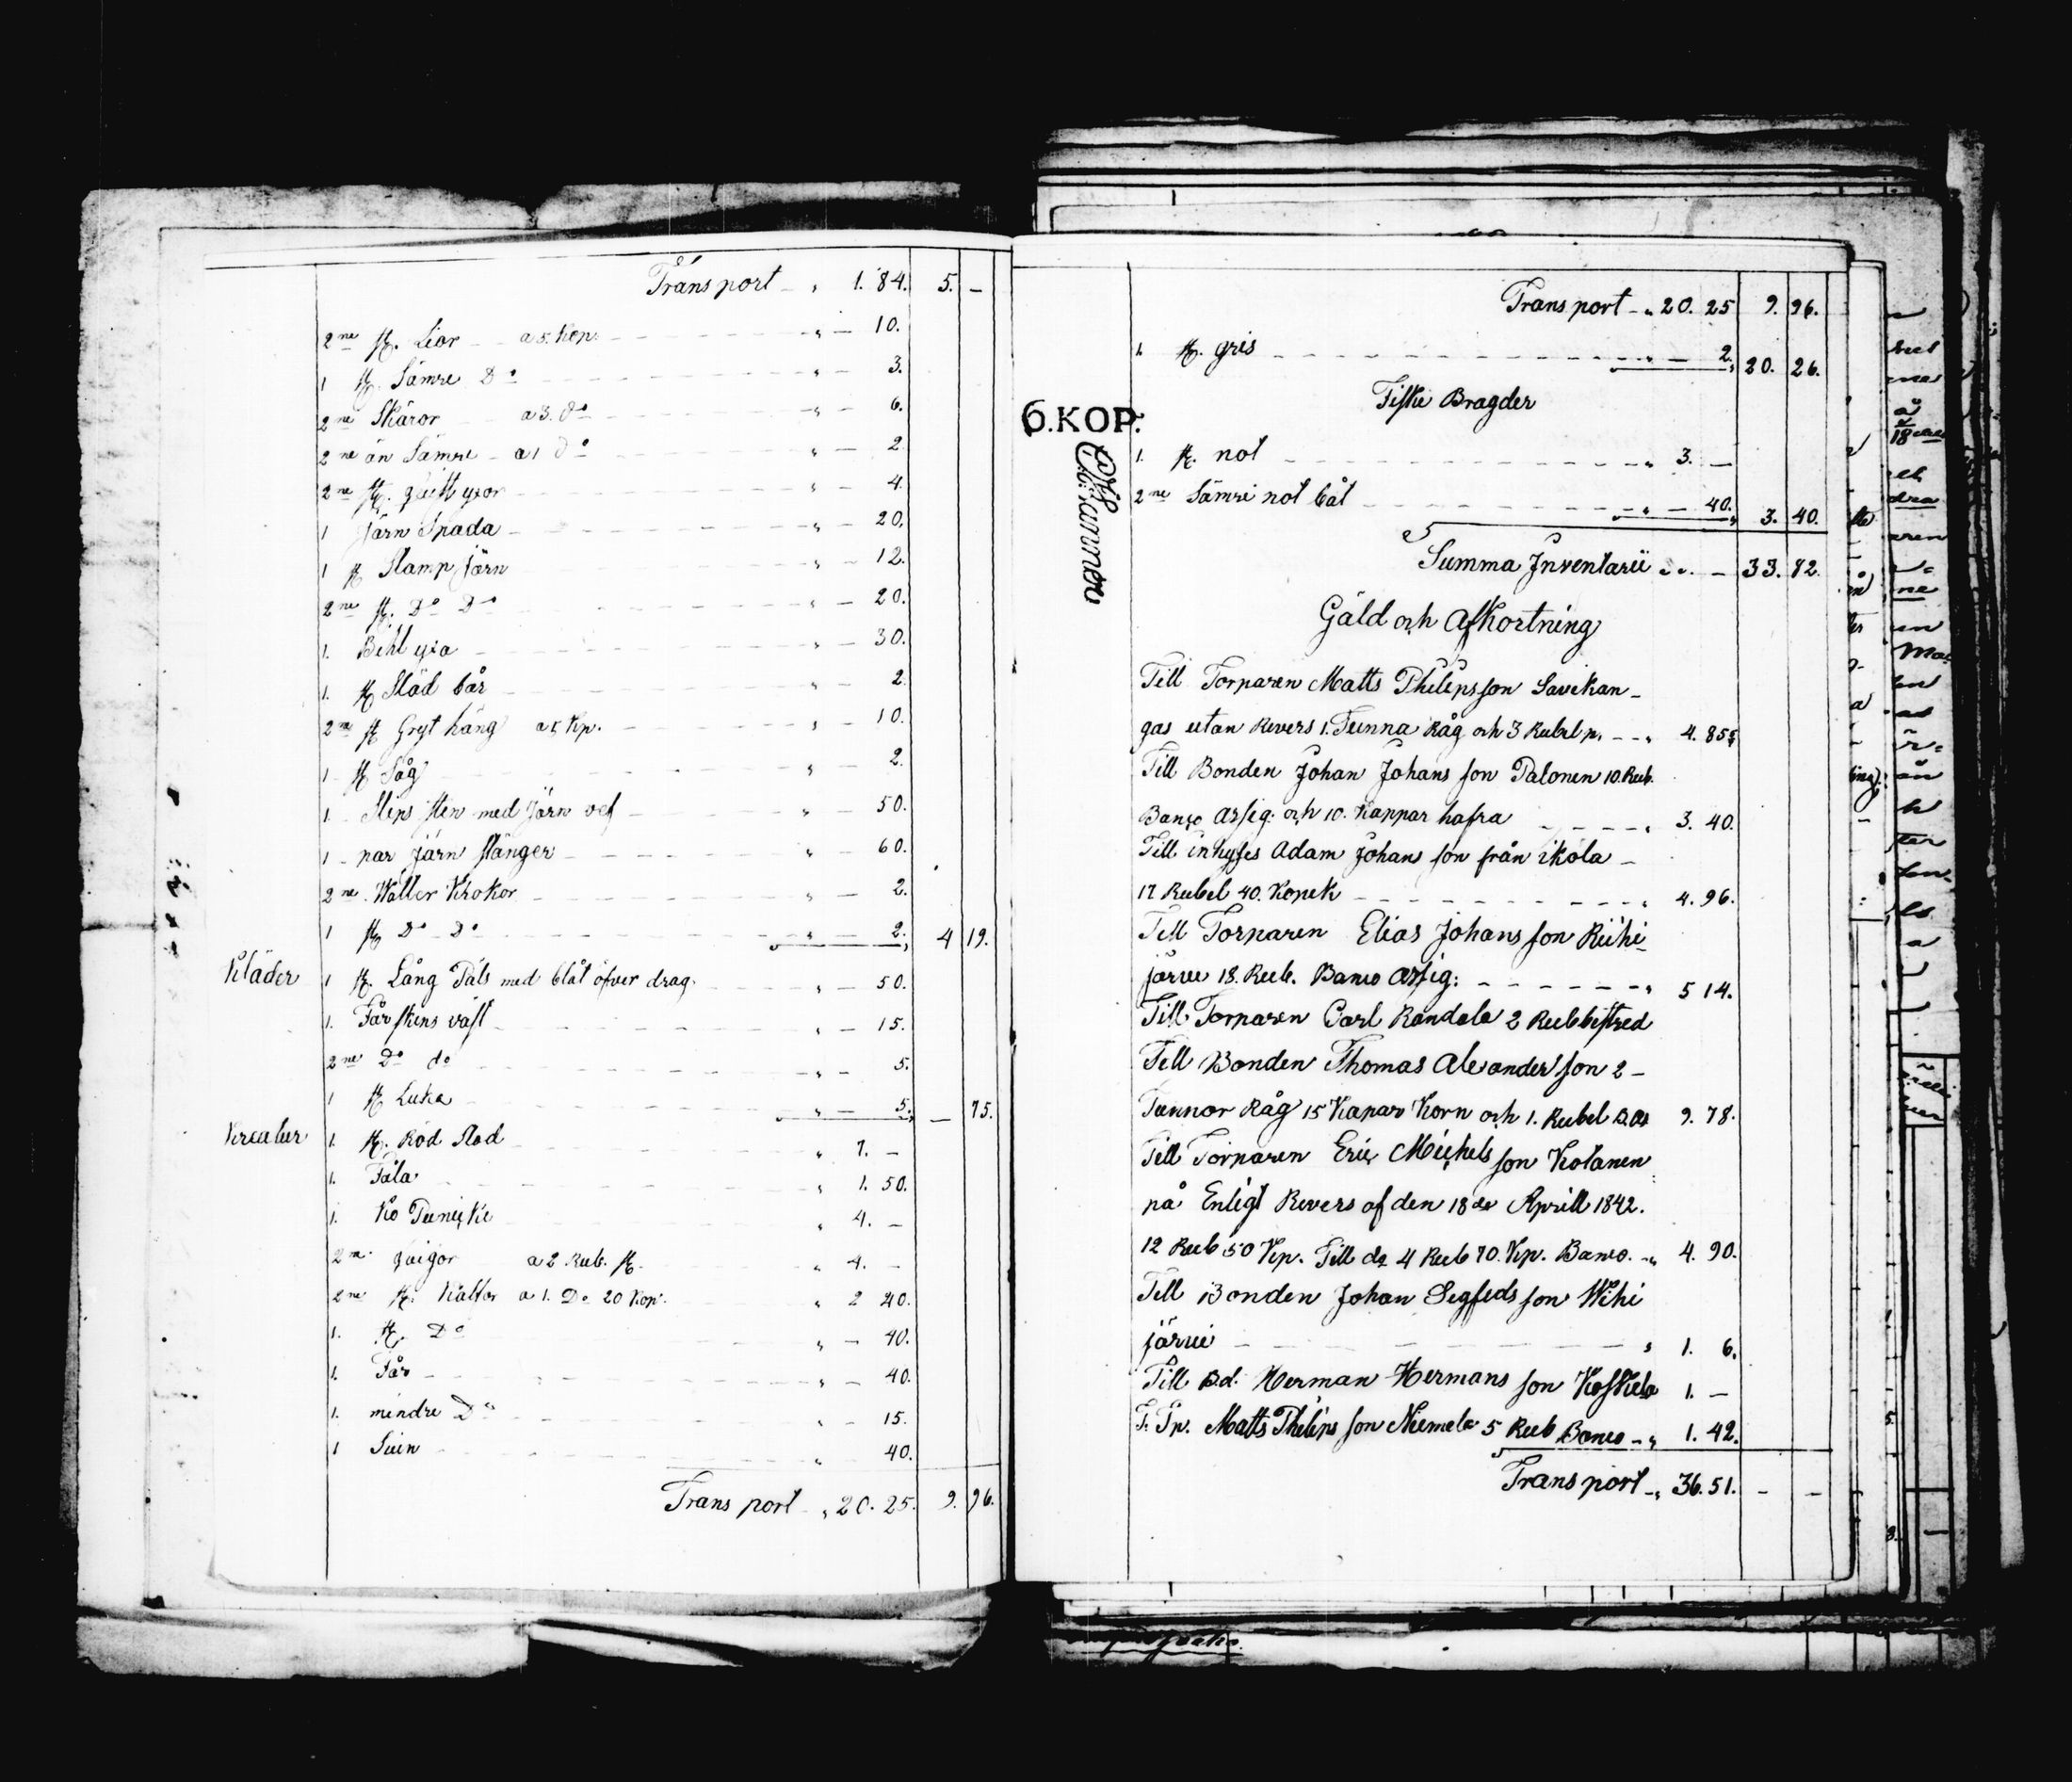 Transport - „ 1. 84. 5. -
2ne st. Lior a 5. Kop. „ - 10.
1 st. Sämre Do „ - 3.
2ne Skäror a 3. do „ - 6.
2ne än Sämre a 1 do „ - 2.
2ne st. yxor „ - 4.
1 Järn Spada „ - 20.
1 st Stamp Järn „ - 12.
2ne st. Do Do „ - 20.
1. Bihl yxa „ - 30.
1. st Släd bår „ - 2.
2ne st Gryt häng a 5 Kp. „ - 10.
1 - st Såg „ - 2.
1. Slips sten med Järn vef „ - 50.
1 - par järn stänger „ - 60.
2ne Wäller Krokor „ - 2.
1 st Do Do „ - 2. 4 19.
Kläder 1 st. Lång Päls med blåt öfver drag. „ - 50.
1. Fårskens väst „ - 15.
2ne Do do „ - 5.
1 st Luka „ - 5. - 75.
Kreatur 1. st. Röd Stod „ 7. -
1. Fåla „ 1. 50.
1. Ko Punicki „ 4. -
2ne quigor a 2 Rub. st. „ 4. -
2ne st. Kalfvar a 1. Do 20 Kop. „ 2 40.
1. st. Do „ - 40.
1. Får - „ - 40.
1. mindre Do „ - 15.
1 Suin „ 40.
Transport - „ 20. 25. 9. 96.
Transport - „ 20. 25 9. 96.
1. st. gris „ - 2. 20. 26.
Fiske Bragder
6.KOP.
1. st. not „ 3. -
2ne Sämre not båt „ - 40. 3. 40.
Summa Inventarii „ - 33. 82.
Gäld och Afkortning
Till Torparen Matts Philipsson Savikan-
gas utan Revers 1. Tunna Råg och 3 Rubel p. - „ 4. 85
Till Bonden Johan Johans son Palonen 10. Rub.
Banco Assig: och 10. Kappar hafra „ 3. 40.
Till inhyses Adam Johans son från ikola -
17 Rubel 40. Kopek „ 4. 96.
Till Torparen Elias Johans son Riihi-
järvi 18. Rub. Banco Assig: „ 5 14.
Till Torparen Carl Randala 2 Rub bistred
Till Bonden Thomas Alexanders son 2 -
Tunnor Råg 15 Kapar Korn och 1. Rubel B.As 9. 78.
Till Torparen Eric Michels son Kolanen
på Enligt Revers af den 18de Aprill 1842.
12 Rub 50 Kp. Till do 4 Rub 70. Kp. Banco. - „ 4. 90.
Till Bonden Johan Segfeds son Wihi
järvi „ 1. 6.
Till Bd. Herman Hermans son Koskela 1. -
T. Tp. Matts Philips son Niemela 5 Rub Banco - „ 1. 42.
Transport - „ 36. 51. - -